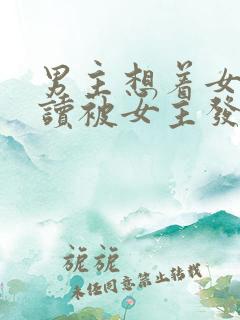 男主想着女
讀被女主發
旎旎
未任同意禁止转載